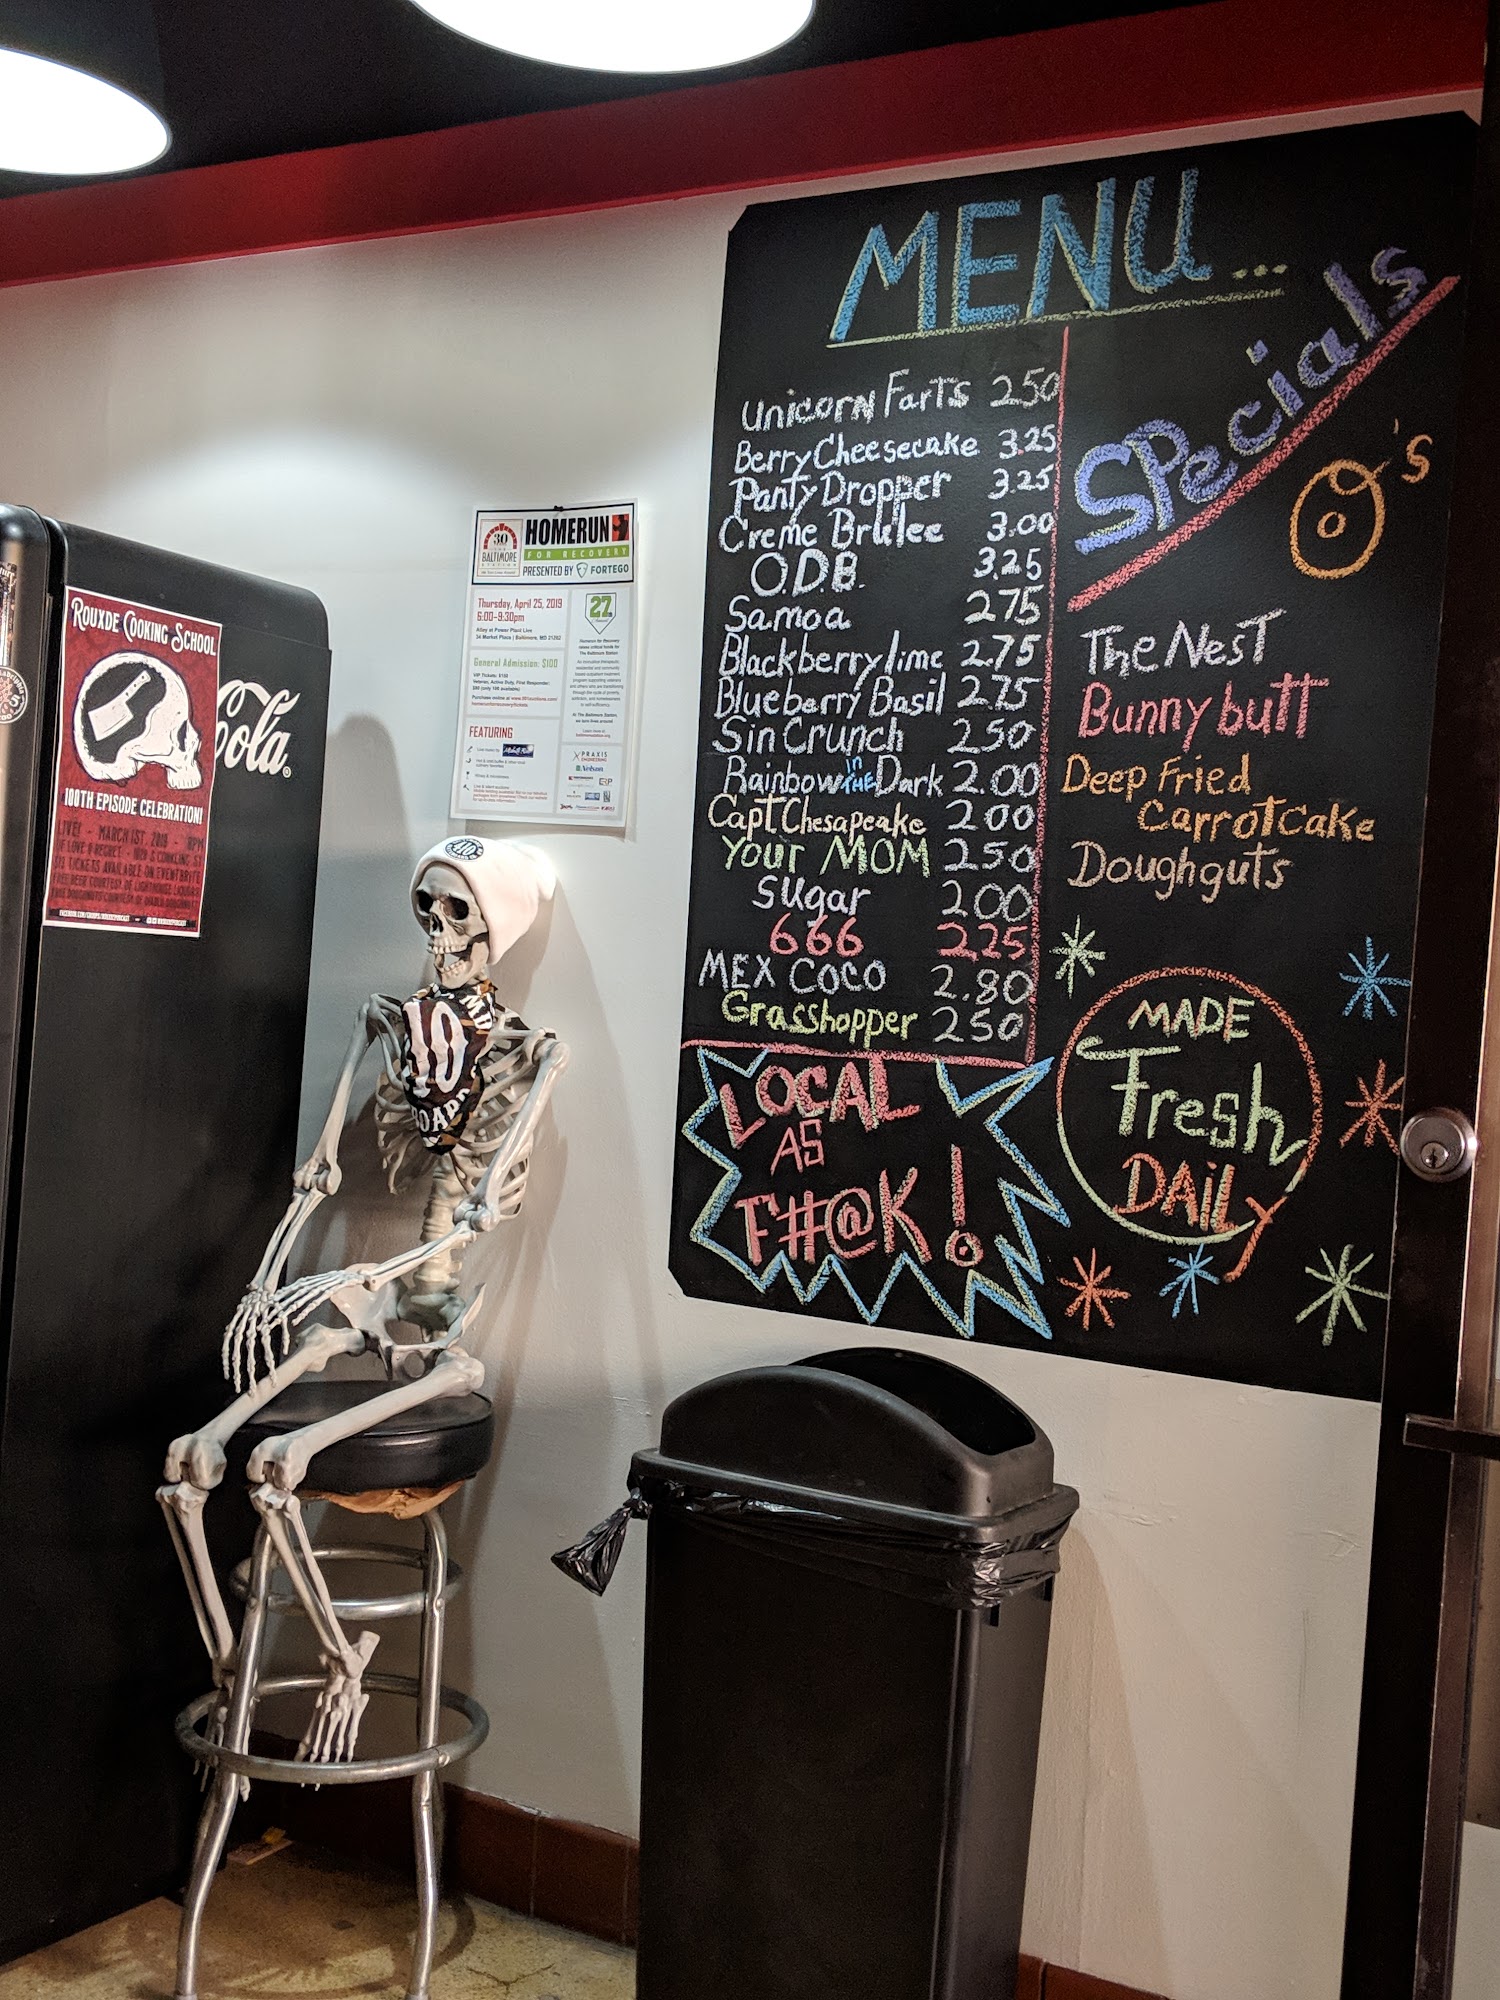 MENU...
Unicorn Farts 2.50
Berry Cheesecake 3.25
Panty Dropper 3.25
Creme Brulee 3.00
O.D.B. 3.25
Samoa 2.75
Blackberry lime 2.75
Blueberry Basil 2.75
Sin Crunch 2.50
Rainbow in THE Dark 2.00
Capt Chesapeake 2.00
Your MOM 2.50
Sugar 2.00
666 2.25
MEX COCO 2.80
Grasshopper 2.50
LOCAL
AS
F#@K!
Specials
O's
The Nest
Bunny butt
Deep Fried
Carrot Cake
Doughguts
MADE
Fresh
DAILY
30
BALTIMORE
STATION
HOMERUN
FOR RECOVERY
PRESENTED BY FORTEGO
Thursday, April 25, 2019
6:00-9:30pm
Alley at Power Plant Live
34 Market Place | Baltimore, MD 21202
General Admission: $100
VIP Tickets: $150
FEATURING
27
PRAXIS
ENGINEERING
Nelson
ROUXDE COOKING SCHOOL
100TH EPISODE CELEBRATION!
LIVE! - MARCH 1ST, 2019 - 8PM
Cola
410
10